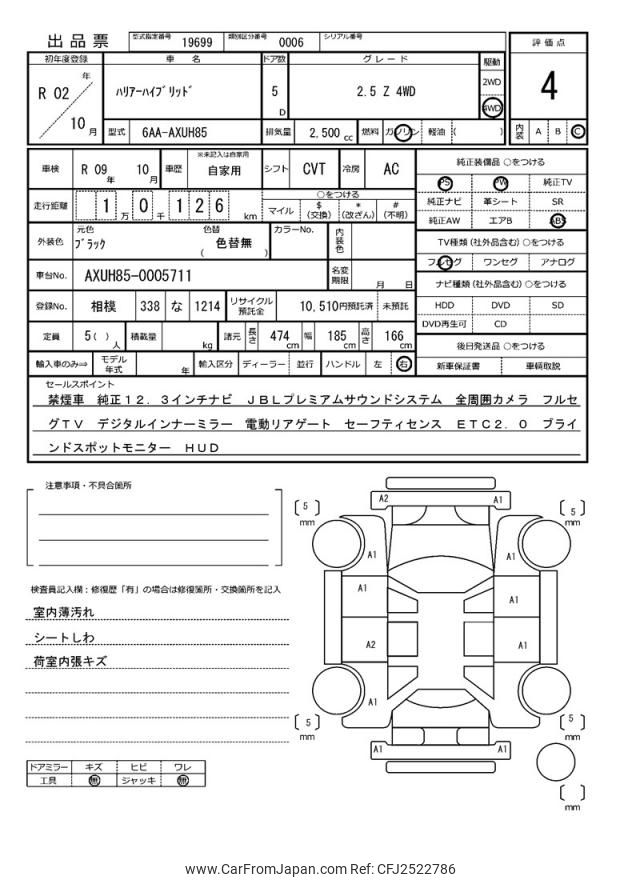 出品票 型式指定番号 19699 類別区分番号 0006 シリアル番号
評価点
4
内装 A B C
初年度登録 車名 ドア数 グレード 駆動
R 02 年 10 月
ハリアーハイブリッド 5 D 2.5 Z 4WD 2WD 4WD
型式 6AA-AXUH85 排気量 2,500 cc 燃料 ガソリン 軽油 ( )
車検 R 09 年 10 月 車歴 ※未記入は自家用 自家用 シフト CVT 冷房 AC
走行距離 1 万 0 千 1 2 6 km
○をつける
マイル $ (交換) * (改ざん) # (不明)
外装色 元色 ブラック 色替 ( 色替無 ) カラーNo. 内装色
車台No. AXUH85-0005711 名変期限 月 日
登録No. 相模 338 な 1214 リサイクル預託金 10,510円預託済 未預託
定員 5( ) 人 積載量 kg 諸元 長さ 474 cm 幅 185 cm 高さ 166 cm
輸入車のみ⇒ モデル年式 年 輸入区分 ディーラー 並行 ハンドル 左 右
純正装備品 ○をつける
PS PW 純正TV
純正ナビ 革シート SR
純正AW エアB ABS
TV種類 (社外品含む) ○をつける
フルセグ ワンセグ アナログ
ナビ種類 (社外品含む) ○をつける
HDD DVD SD
DVD再生可 CD
後日発送品 ○をつける
新車保証書 車輌取説
セールスポイント
禁煙車 純正12.3インチナビ JBLプレミアムサウンドシステム 全周囲カメラ フルセ
グTV デジタルインナーミラー 電動リアゲート セーフティセンス ETC2.0 ブライ
ンドスポットモニター HUD
注意事項・不具合箇所
検査員記入欄:修復歴「有」の場合は修復箇所・交換箇所を記入
室内薄汚れ
シートしわ
荷室内張キズ
ドアミラー キズ ヒビ ワレ
工具 無 ジャッキ 無
A2 A1
5 mm 5 mm
A1 A1
A1 A1
A2 A1
A1 A1
5 mm 5 mm
A1 A1
mm
www.CarFromJapan.com Ref: CFJ2522786